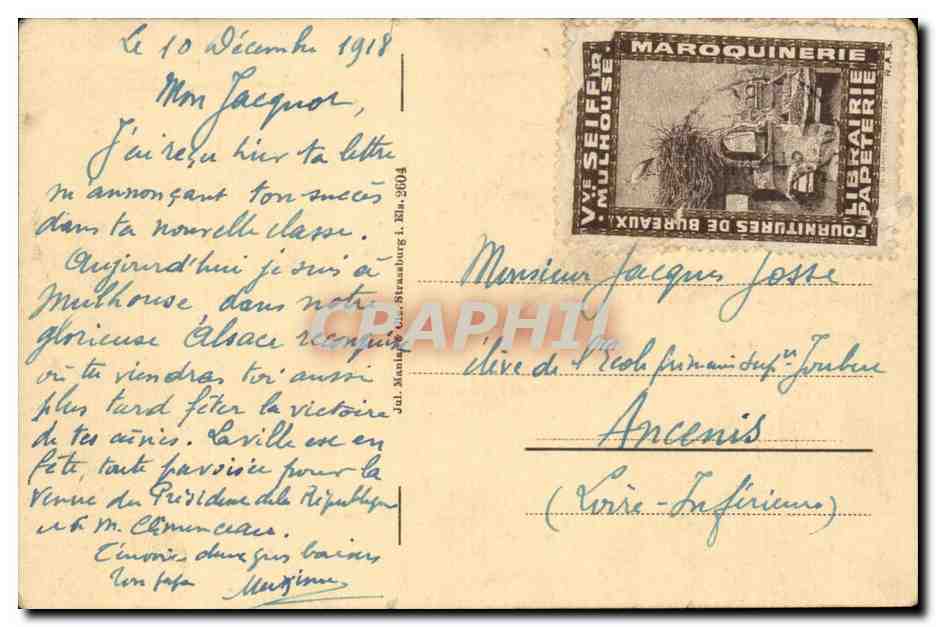 Le 10 Décembre 1918
Mon Jacquot,
J'ai reçu hier ta lettre
m'annonçant ton succès
dans ta nouvelle classe.
Aujourd'hui je suis à
Mulhouse, dans notre
glorieuse Alsace reconquise
où tu viendras toi aussi
plus tard fêter la victoire
de tes aînés. La ville est en
fête, toute pavoisée pour la
venue du Président de la République
et de M. Clémenceau.
T'envoie deux gros baisers
Ton papa
Jul. Manias & Cie. Strassburg i. Els. 2604
CPAPHIL
MAROQUINERIE
Vve SEIFFER
MULHOUSE
LIBRAIRIE
PAPETERIE
FOURNITURES DE BUREAUX
Monsieur Jacques Josse
élève de l'Ecole primaire Supre Joubert
Ancenis
(Loire-Inférieure)